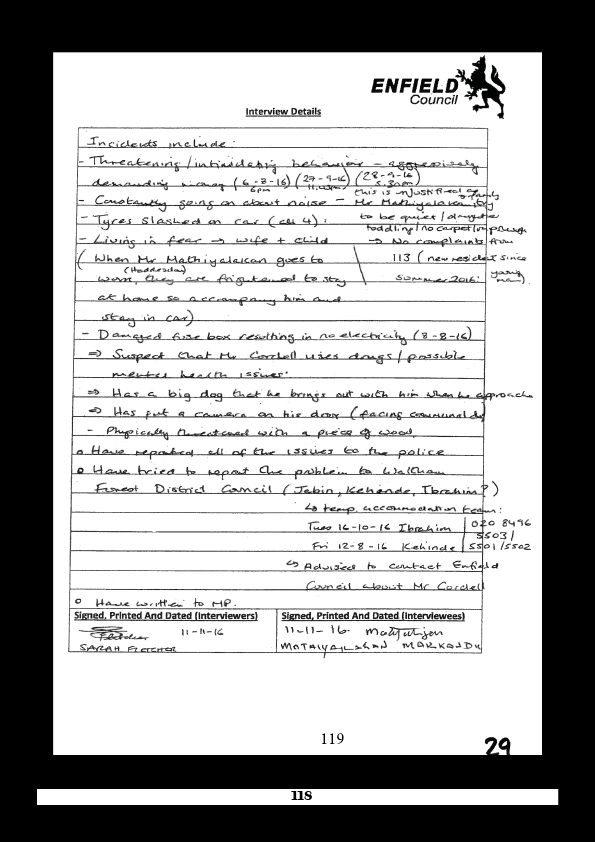 ENFIELD
Council
Interview Details
Incidents include:
- Threatening / intimidating behaviour - aggressively
demanding money (6-8-16) (27-9-16) (28-9-16)
6pm 5.30pm
- Constantly going on about noise - this is unjustified as
Mr Mathiyalakan's family
- Tyres slashed on car (all 4): to be quiet / daughter
toddling / no carpet / on phone
- Living in fear → wife + child → No complaints from
(When Mr Mathiyalakan goes to 113 (new resident since
(Hoddesdon)
work, they are frightened to stay Summer 2016: young
man)
at home so accompany him and
stay in car)
- Damaged fuse box resulting in no electricity (8-8-16)
⇒ Suspect that Mr Cordell uses drugs / possible
mental health issues.
⇒ Has a big dog that he brings out with him when he approaches
⇒ Has put a camera on his door (facing communal
- Physically threatened with a piece of wood.
o Have reported all of the issues to the police
o Have tried to report the problem to Waltham
Forest District Council (Jabin, Kehinde, Ibrahim?)
↳ temp. accommodation team:
Tues 16-10-16 Ibrahim 020 8496
5503/
Fri 12-8-16 Kehinde 5501/5502
↳ Advised to contact Enfield
Council about Mr Cordell
o Have written to MP.
Signed, Printed And Dated (Interviewers) Signed, Printed And Dated (Interviewees)
Fletcher 11-11-16 11-11-16
SARAH FLETCHER MARKANDU
119
29
118